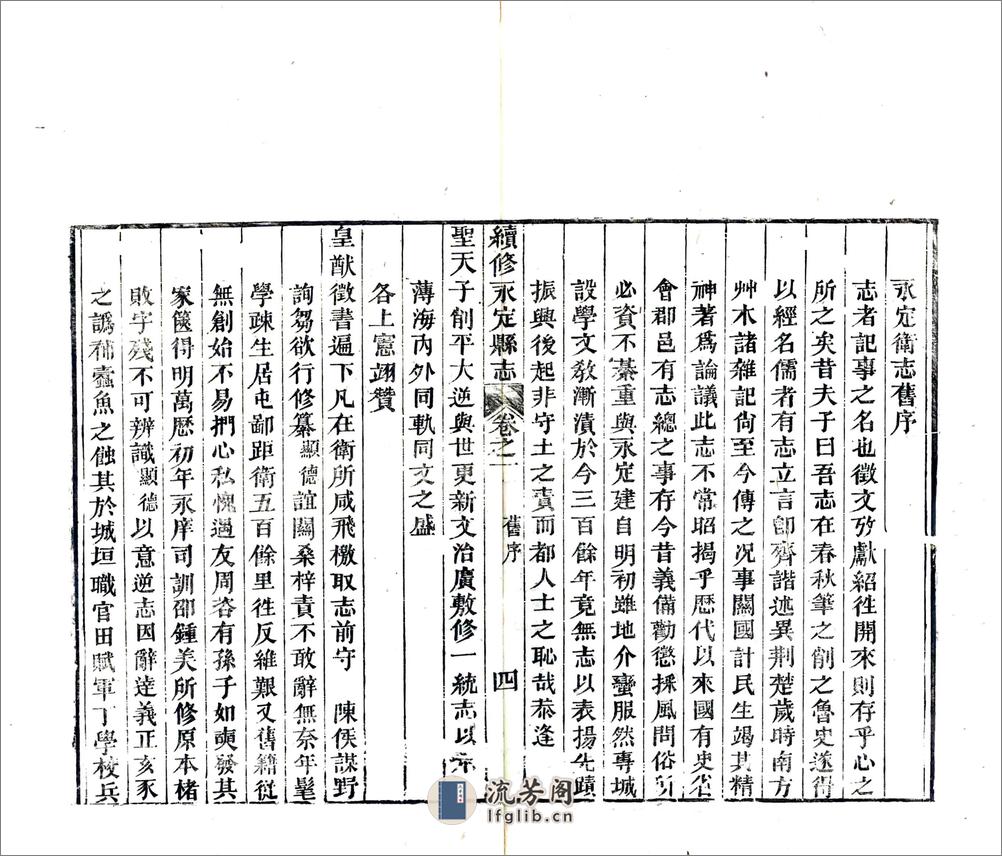 永定衛志舊序
志者記事之名也徵文攷獻紹徃開來則存乎心之
所之矣昔夫子曰吾志在春秋筆之削之魯史遂得
以經名儒者有志立言卽齊諧述異荆楚歲時南方
艸木諸雜記尙至今傳之况事關國計民生竭其精
神著爲論議此志不常昭揭乎歴代以來國有史省
會郡邑有志總之事存今昔義備勸懲採風問俗所
必資不綦重與永定建自明初雖地介蠻服然專城
設學文敎漸漬於今三百餘年竟無志以表揚先蹟
振興後起非守土之責而都人士之恥哉恭逢
續修永定縣志 卷之一 舊序 四
聖天子削平大逆與世更新文治廣敷修一統志以示
薄海內外同軌同文之盛
各上憲翊贊
皇猷徵書遍下凡在衛所咸飛檄取志前守 陳侯謀野
詢芻欲行修纂顯德誼關桑梓責不敢辭無奈年髦
學疎生居屯鄙距衛五百餘里徃反維艱又舊籍從
無創始不易捫心私愧過友周咨有孫子如奭發其
家篋得明萬歴初年永庠司訓邵鍾美所修原本楮
敗字殘不可辨識顯德以意逆志因辭達義正亥豕
之譌補蠹魚之蝕其於城垣職官田賦軍丁學校兵
流芳阁
lfglib.cn